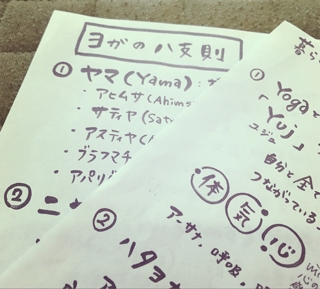 ヨガの八支則
① ヤマ(Yama):
・アヒムサ(Ahims
・サティヤ(Sat
・アスティヤ(
・ブラフマチ
・アパリ
② ニ
暮ら
①
Yogaと
「Yuj」
ユジュ
自分と全て
つながっている
体 気 心
② ハタヨ
アーサナ、呼吸、